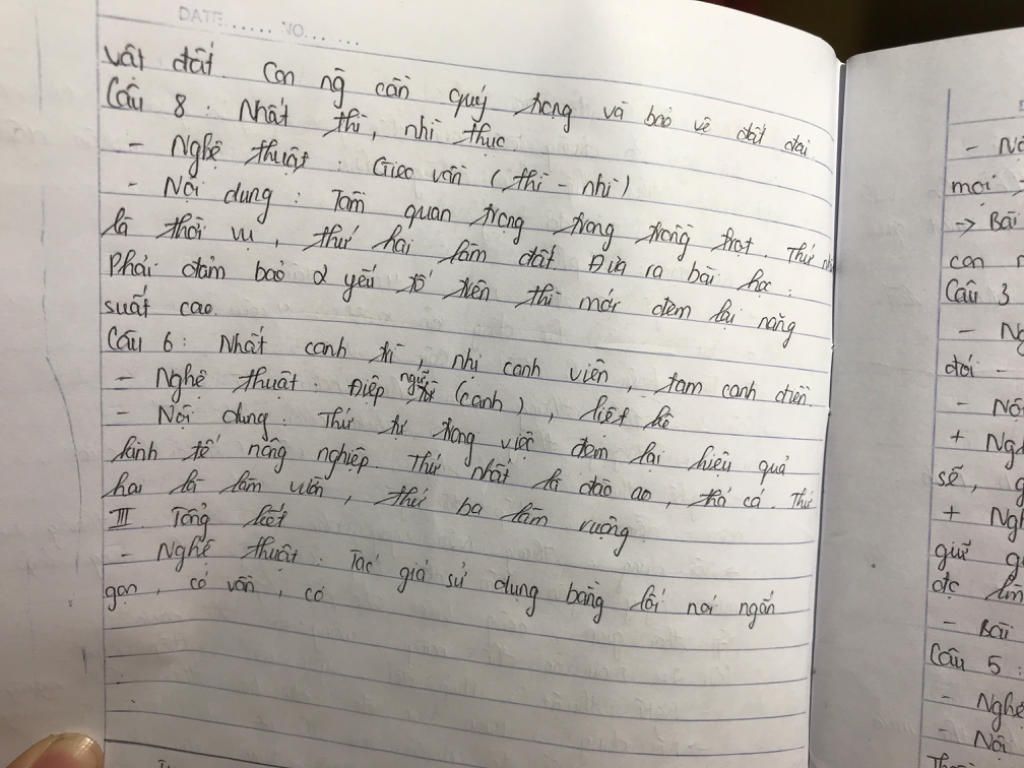 DATE...... NO.......
vật đất. Con ng cần quý trọng và bảo vệ đất đai.
Câu 8 : Nhất thì, nhì thục.
- Nghệ thuật : Gieo vần (thì - nhì)
- Nội dung : Tầm quan trọng trong trồng trọt. Thứ nh
là thời vụ, thứ hai làm đất. Đưa ra bài học :
Phải đảm bảo 2 yếu tố trên thì mới đem lại năng
suất cao.
Câu 6 : Nhất canh trì, nhị canh viên, tam canh điền.
- Nghệ thuật : Điệp ngữ (canh), liệt kê
- Nội dung : Thứ tự trong việc đem lại hiệu quả
kinh tế nông nghiệp. Thứ nhất là đào ao, thả cá. Thứ
hai là làm vườn, thứ ba làm ruộng.
III. Tổng kết
- Nghệ thuật : Tác giả sử dụng bằng lối nói ngắn
gọn, có vần, có
- Nộ
mọi
-> Bài
con n
Câu 3
- Ng
đối -
- Nội
+ Ngh
sẽ, g
+ Ngh
giữ g
đc làm
- Bài
Câu 5 :
- Nghệ
- Nội